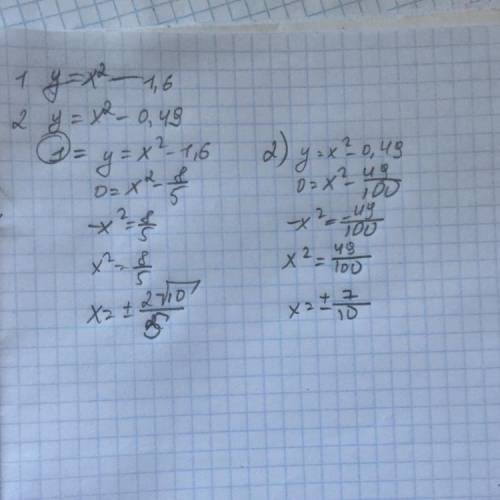 1 y = x² — 1,6
2 y = x² - 0,49
1 = y = x² - 1,6
0 = x² - 8/5
-x² = 8/5
x² = 8/5
x = ± 2√10/5
2) y = x² - 0,49
0 = x² - 49/100
-x² = -49/100
x² = 49/100
x = ± 7/10